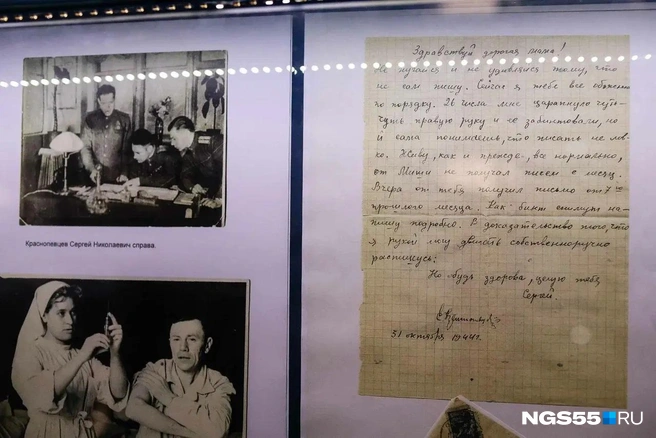 Здравствуй дорогая мама!
Не пугайся и не удивляйся тому, что
не сам пишу. Сейчас я тебе все объясню
по порядку. 26 числа мне царапнуло чуть-
чуть правую руку и ее забинтовали, но
й сама понимаешь, что писать не лов-
ко. Живу, как и прежде, все нормально,
от Миши не получал писем с месяц.
Вчера от тебя получил письмо от 7го
прошлого месяца. Как бинт снимут на-
пишу подробно. В доказательство того, что
я рукой могу действ собственноручно
распишусь:
Но будь здорова, целую тебя
Сергей.
31 октября 1944г.
Краснопевцев Сергей Николаевич справа.
NGS55.RU